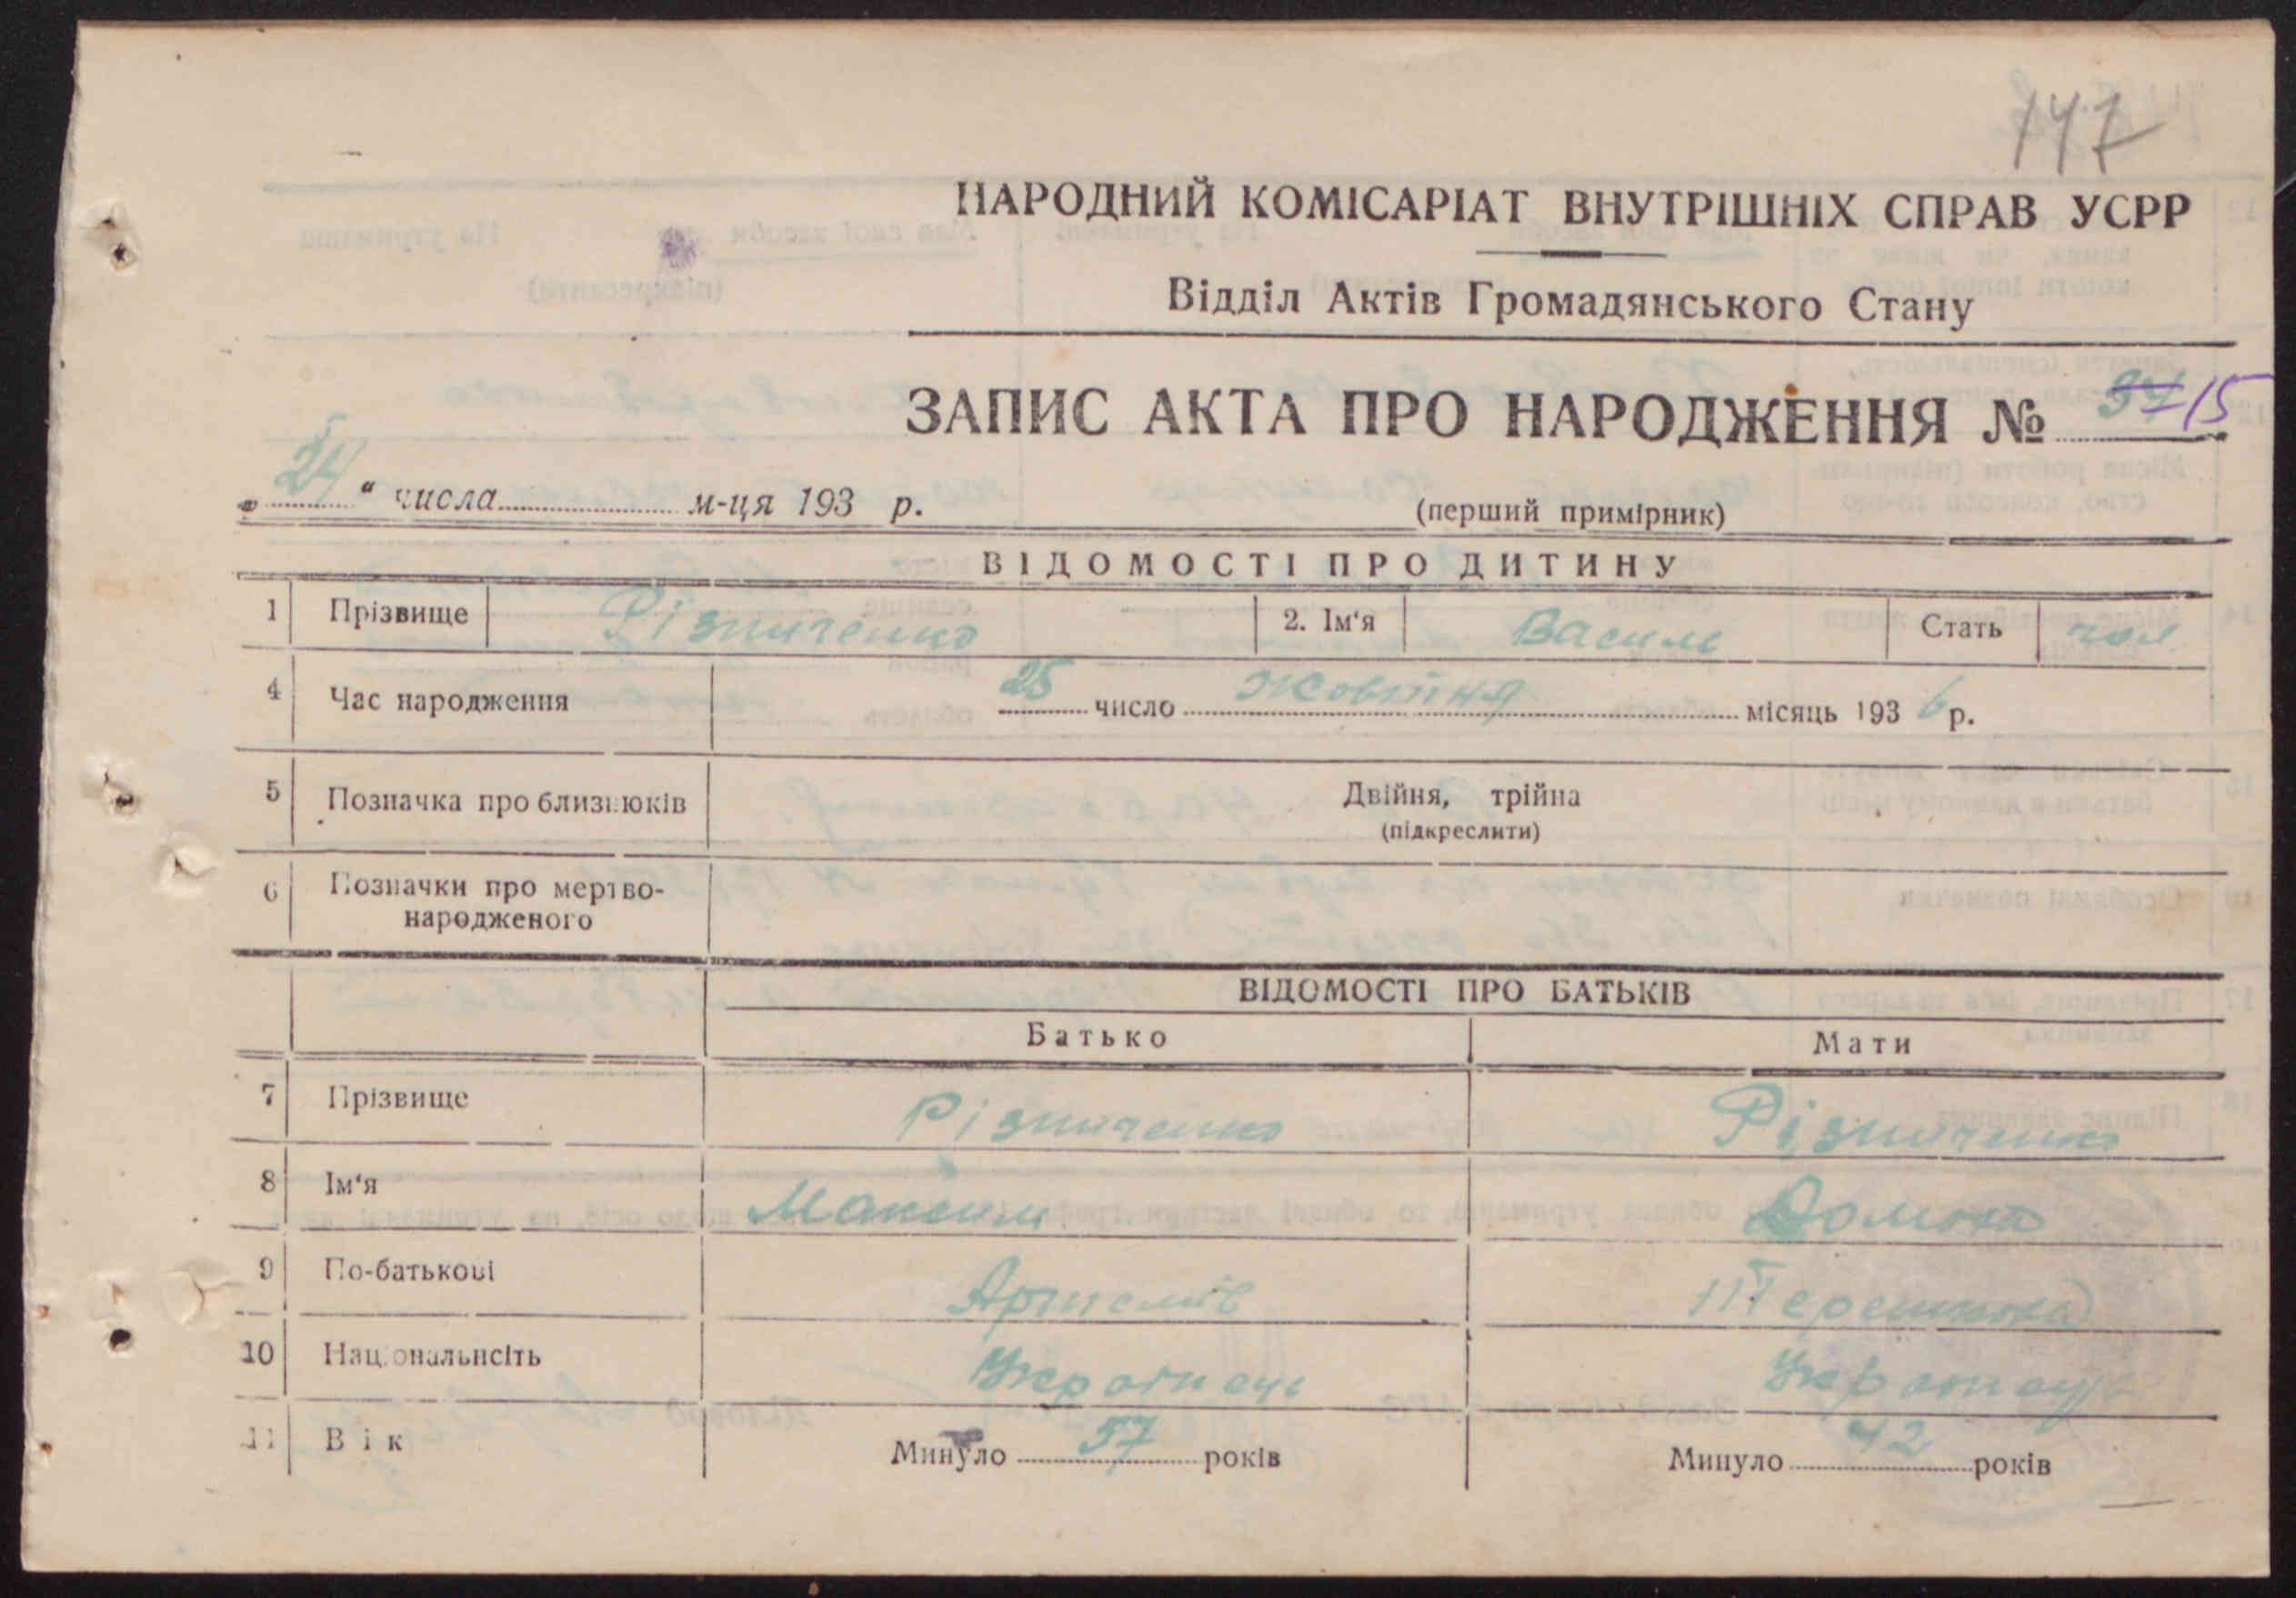 147
НАРОДНИЙ КОМІСАРІАТ ВНУТРІШНІХ СПРАВ УСРР
Відділ Актів Громадянського Стану
ЗАПИС АКТА ПРО НАРОДЖЕННЯ № 15
„ 24 “ числа м-ця 193 р. (перший примірник)
ВІДОМОСТІ ПРО ДИТИНУ
1 Прізвище Різниченко 2. Ім'я Василь Стать чол
4 Час народження 25 число жовтня місяць 1936 р.
5 Позначка про близнюків Двійня, трійна
(підкреслити)
6 Позначки про мертво-
народженого
ВІДОМОСТІ ПРО БАТЬКІВ
Батько Мати
7 Прізвище Різниченко Різниченко
8 Ім'я Максим
9 По-батькові Артемів
10 Національнсіть Українець
11 Вік Минуло 57 років Минуло 42 років